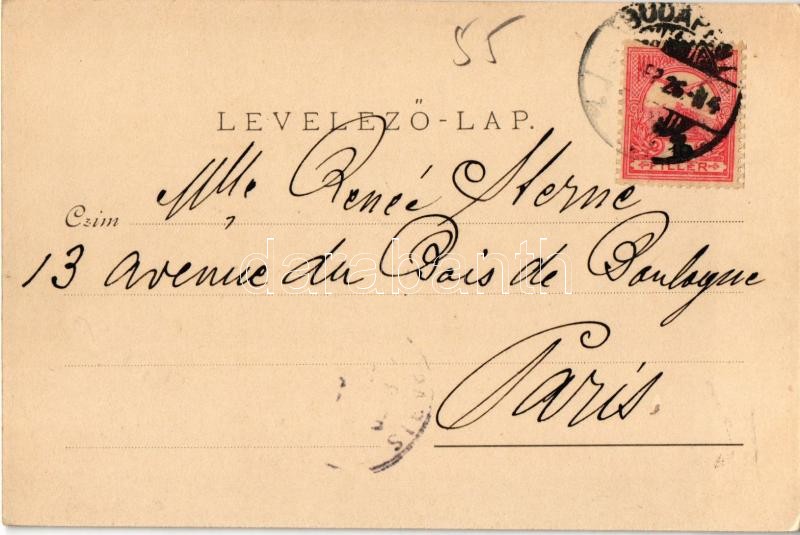 55
BUDAPEST
FILLER
LEVELEZŐ-LAP.
Czim
Mlle Renée Sterne
13 avenue du Bois de Boulogne
Paris.
darabanth
PARIS